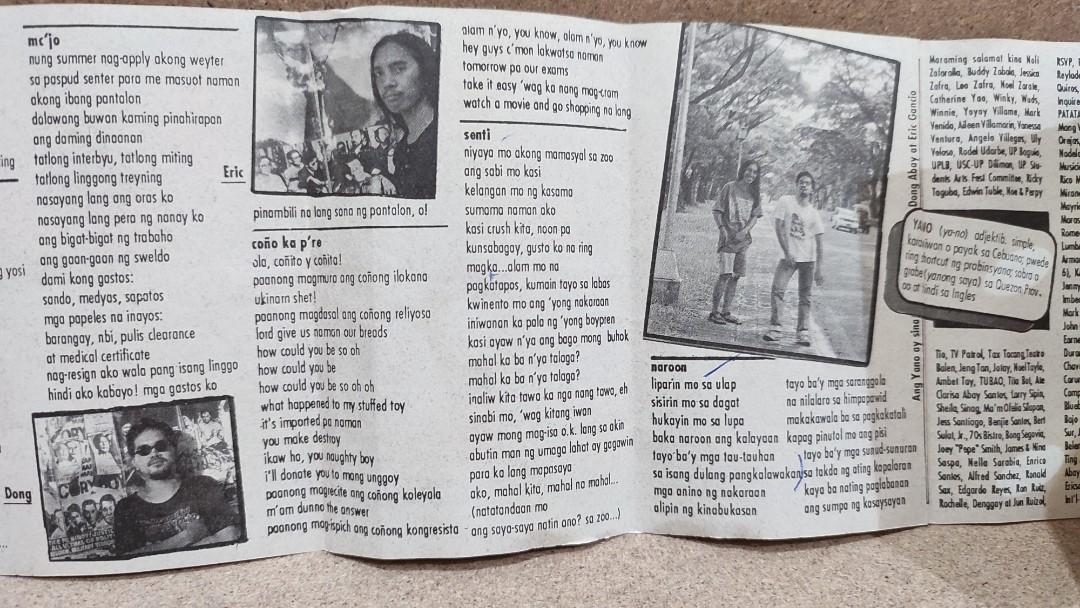 mc'jo
nung summer nag-apply akong weyter
sa paspud senter para me masuot naman
akong ibang pantalon
dalawang buwan kaming pinahirapan
ang daming dinaanan
tatlong interbyu, tatlong miting
tatlong linggong treyning
nasayang lang ang oras ko
nasayang lang pera ng nanay ko
ang bigat-bigat ng trabaho
ang gaan-gaan ng sweldo
dami kong gastos:
sando, medyas, sapatos
mga papeles na inayos:
barangay, nbi, pulis clearance
at medical certificate
nag-resign ako wala pang isang linggo
hindi ako kabayo! mga gastos ko
ing
g yosi
Dong
Eric
pinambili na lang sana ng pantalon, o!
coño ka p're
ola, coñito y coñita!
paanong magmura ang coñong ilokana
ukinam shet!
paanong magdasal ang coñong reliyosa
lord give us naman our breads
how could you be so oh
how could you be
how could you be so oh oh
what happened to my stuffed toy
it's imported pa naman
you make destroy
ikaw ha, you naughty boy
i'll donate you to mang unggoy
paanong magrecite ang coñong koleyala
m'am dunno the answer
paanong mag-ispich ang coñong kongresista
alam n'yo, you know, alam n'yo, you know
hey guys c'mon lakwatsa naman
tomorrow pa our exams
take it easy 'wag ka nang mag-cram
watch a movie and go shopping na lang
senti
niyaya mo akong mamasyal sa zoo
ang sabi mo kasi
kelangan mo ng kasama
sumama naman ako
kasi crush kita, noon pa
kunsabagay, gusto ko na ring
magka...alam mo na
pagkatapos, kumain tayo sa labas
kwinento mo ang 'yong nakaraan
iniwanan ka pala ng 'yong boypren
kasi ayaw n'ya ang bago mong buhok
mahal ka ba n'ya talaga?
mahal ka ba n'ya talaga?
inaliw kita tawa ka nga nang tawa, eh
sinabi mo, 'wag kitang iwan
ayaw mong mag-isa o.k. lang sa akin
abutan man ng umaga lahat ay gagawin
para ka lang mapasaya
ako, mahal kita, mahal na mahal...
(natatandaan mo
ang saya-saya natin ano? sa zoo...)
naroon
liparin mo sa ulap
sisirin mo sa dagat
hukayin mo sa lupa
baka naroon ang kalayaan
tayo ba'y mga tau-tauhan
sa isang dulang pangkalawakan
mga anino ng nakaraan
alipin ng kinabukasan
tayo ba'y mga saranggola
na nilalaro sa himpapawid
makakawala ba sa pagkakatali
kapag pinutol mo ang pisi
tayo ba'y mga sunud-sunuran
sa takda ng ating kapalaran
kaya ba nating paglabanan
ang sumpa ng kasaysayan
Ang Yano ay sina Dong Abay at Eric Gancio
Maraming salamat kina Noli
Zafaralla, Buddy Zabala, Jessica
Zafra, Leo Zafra, Noel Zarate,
Catherine Yao, Winky, Wuds,
Winnie, Yayay Villame, Mark
Venida, Aileen Villamarin, Vanessa
Ventura, Angelo Villegas, Uly
Veloso, Rodel Udarbe, UP Baguio,
UPLB, USC-UP Diliman, UP Stu-
dents Arts Fest Committee, Ricky
Taguba, Edwin Tuble, Noe & Perpy
YANO (ya-no) adjektib. simple,
karaniwan o payak sa Cebuano; pwede
ring shortcut ng probinsyano; sobra o
grabe(yanong saya) sa Quezon Prov.,
oo at hindi sa Ingles
Tio, TV Patrol, Tax Tacang, Teatro
Balen, Jeng Tan, Jotay, Noel Tayle,
Ambet Tay, TUBAO, Tita Bot, Ate
Clarisa Abay Santos, Larry Sipin,
Sheila, Sinag, Ma'm Ofelia Silapan,
Jess Santiago, Benjie Santos, Bert
Sulat, Jr., 70s Bistro, Bong Segovia,
Joey "Pepe" Smith, James & Nina
Saspa, Nella Sarabia, Enrico
Santos, Alfred Sanchez, Ronald
Sax, Edgardo Reyes, Ron Ruiz,
Rachelle, Denggay at Jun Ruizol,